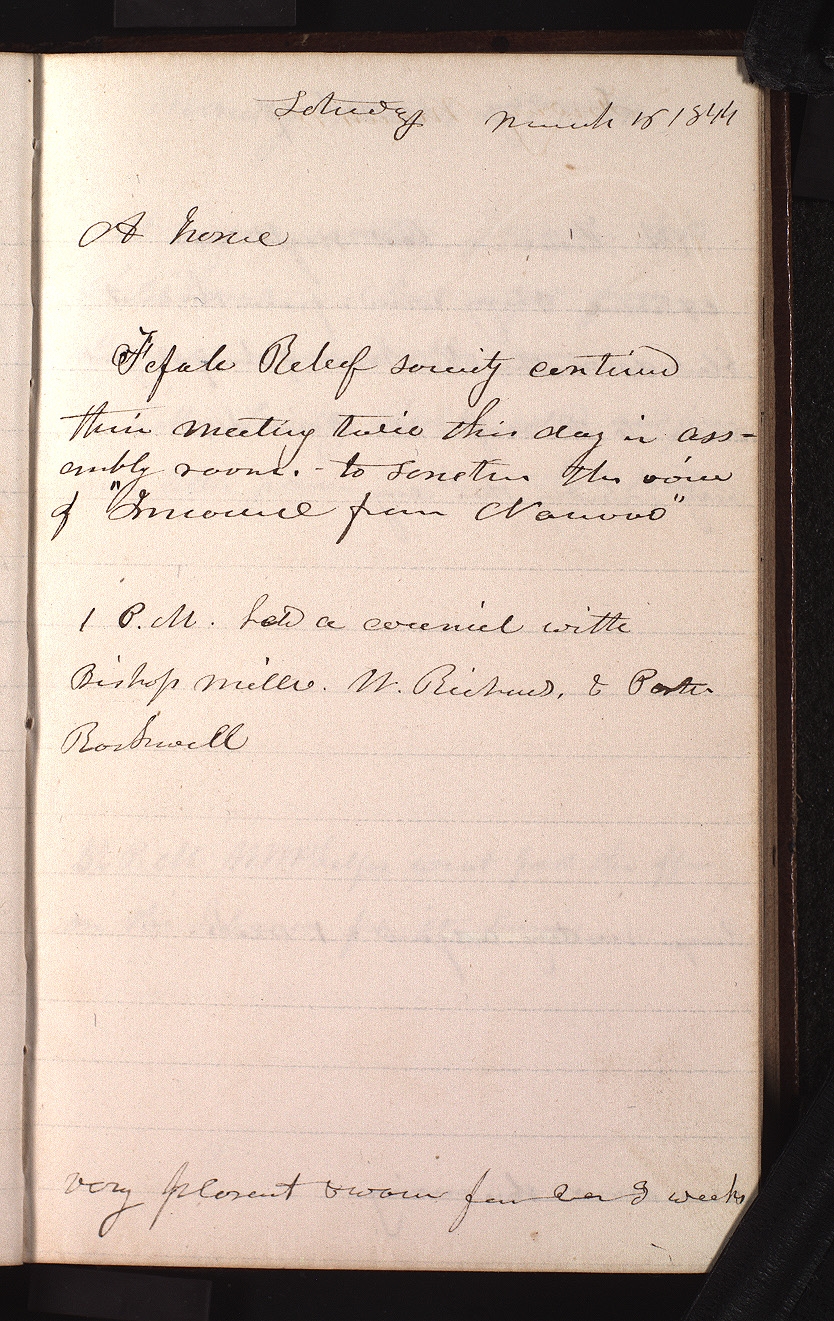 Saturday March 16 1844
At home
Female Relief society continued
their meeting twice this day in ass-
embly room. - to sanction the voice
of "Innocence from Nauvoo"
1 P.M. held a council with
Bishop Miller. W. Richards, & Porter
Rockwell
very pleasant & warm for 2 or 3 weeks